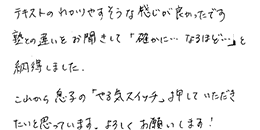 テキストのわかりやすそうな感じが良かったです
塾との違いをお聞きして「確かに…なるほど…」と
納得しました。
これから息子の「やる気スイッチ」押していただき
たいと思っています。よろしくお願いします!